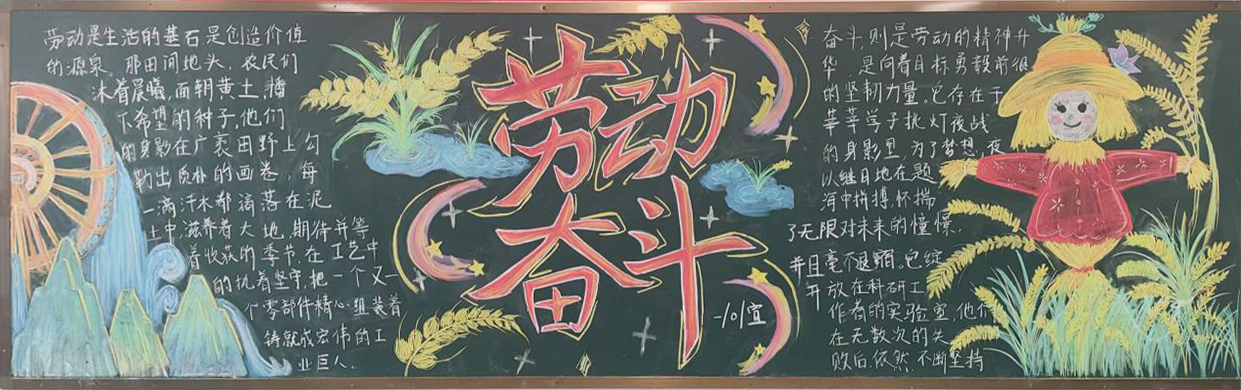 劳动是生活的基石,是创造价值
的源泉。那田间地头,农民们
沐着晨曦,面朝黄土,播
下希望的种子,他们
的身影在广袤田野上勾
勒出质朴的画卷,每
一滴汗水都滴落在泥
土中,滋养着大地,期待并等
着收获的季节。在工艺中
的执着坚守,把一个又一
个零部件精心组装着
铸就成宏伟的工
业巨人.
劳动
奋斗
-101宣
奋斗,则是劳动的精神升
华,是向着目标勇毅前
的坚韧力量。它存在于
莘莘学子挑灯夜战
的身影里,为了梦想,夜
以继日地在题
海中拼搏,怀揣
了无限对未来的憧憬,
并且毫不退缩。它绽
开放在科研工
作者的实验室,他们
在无数次的失
败后,依然不断坚持